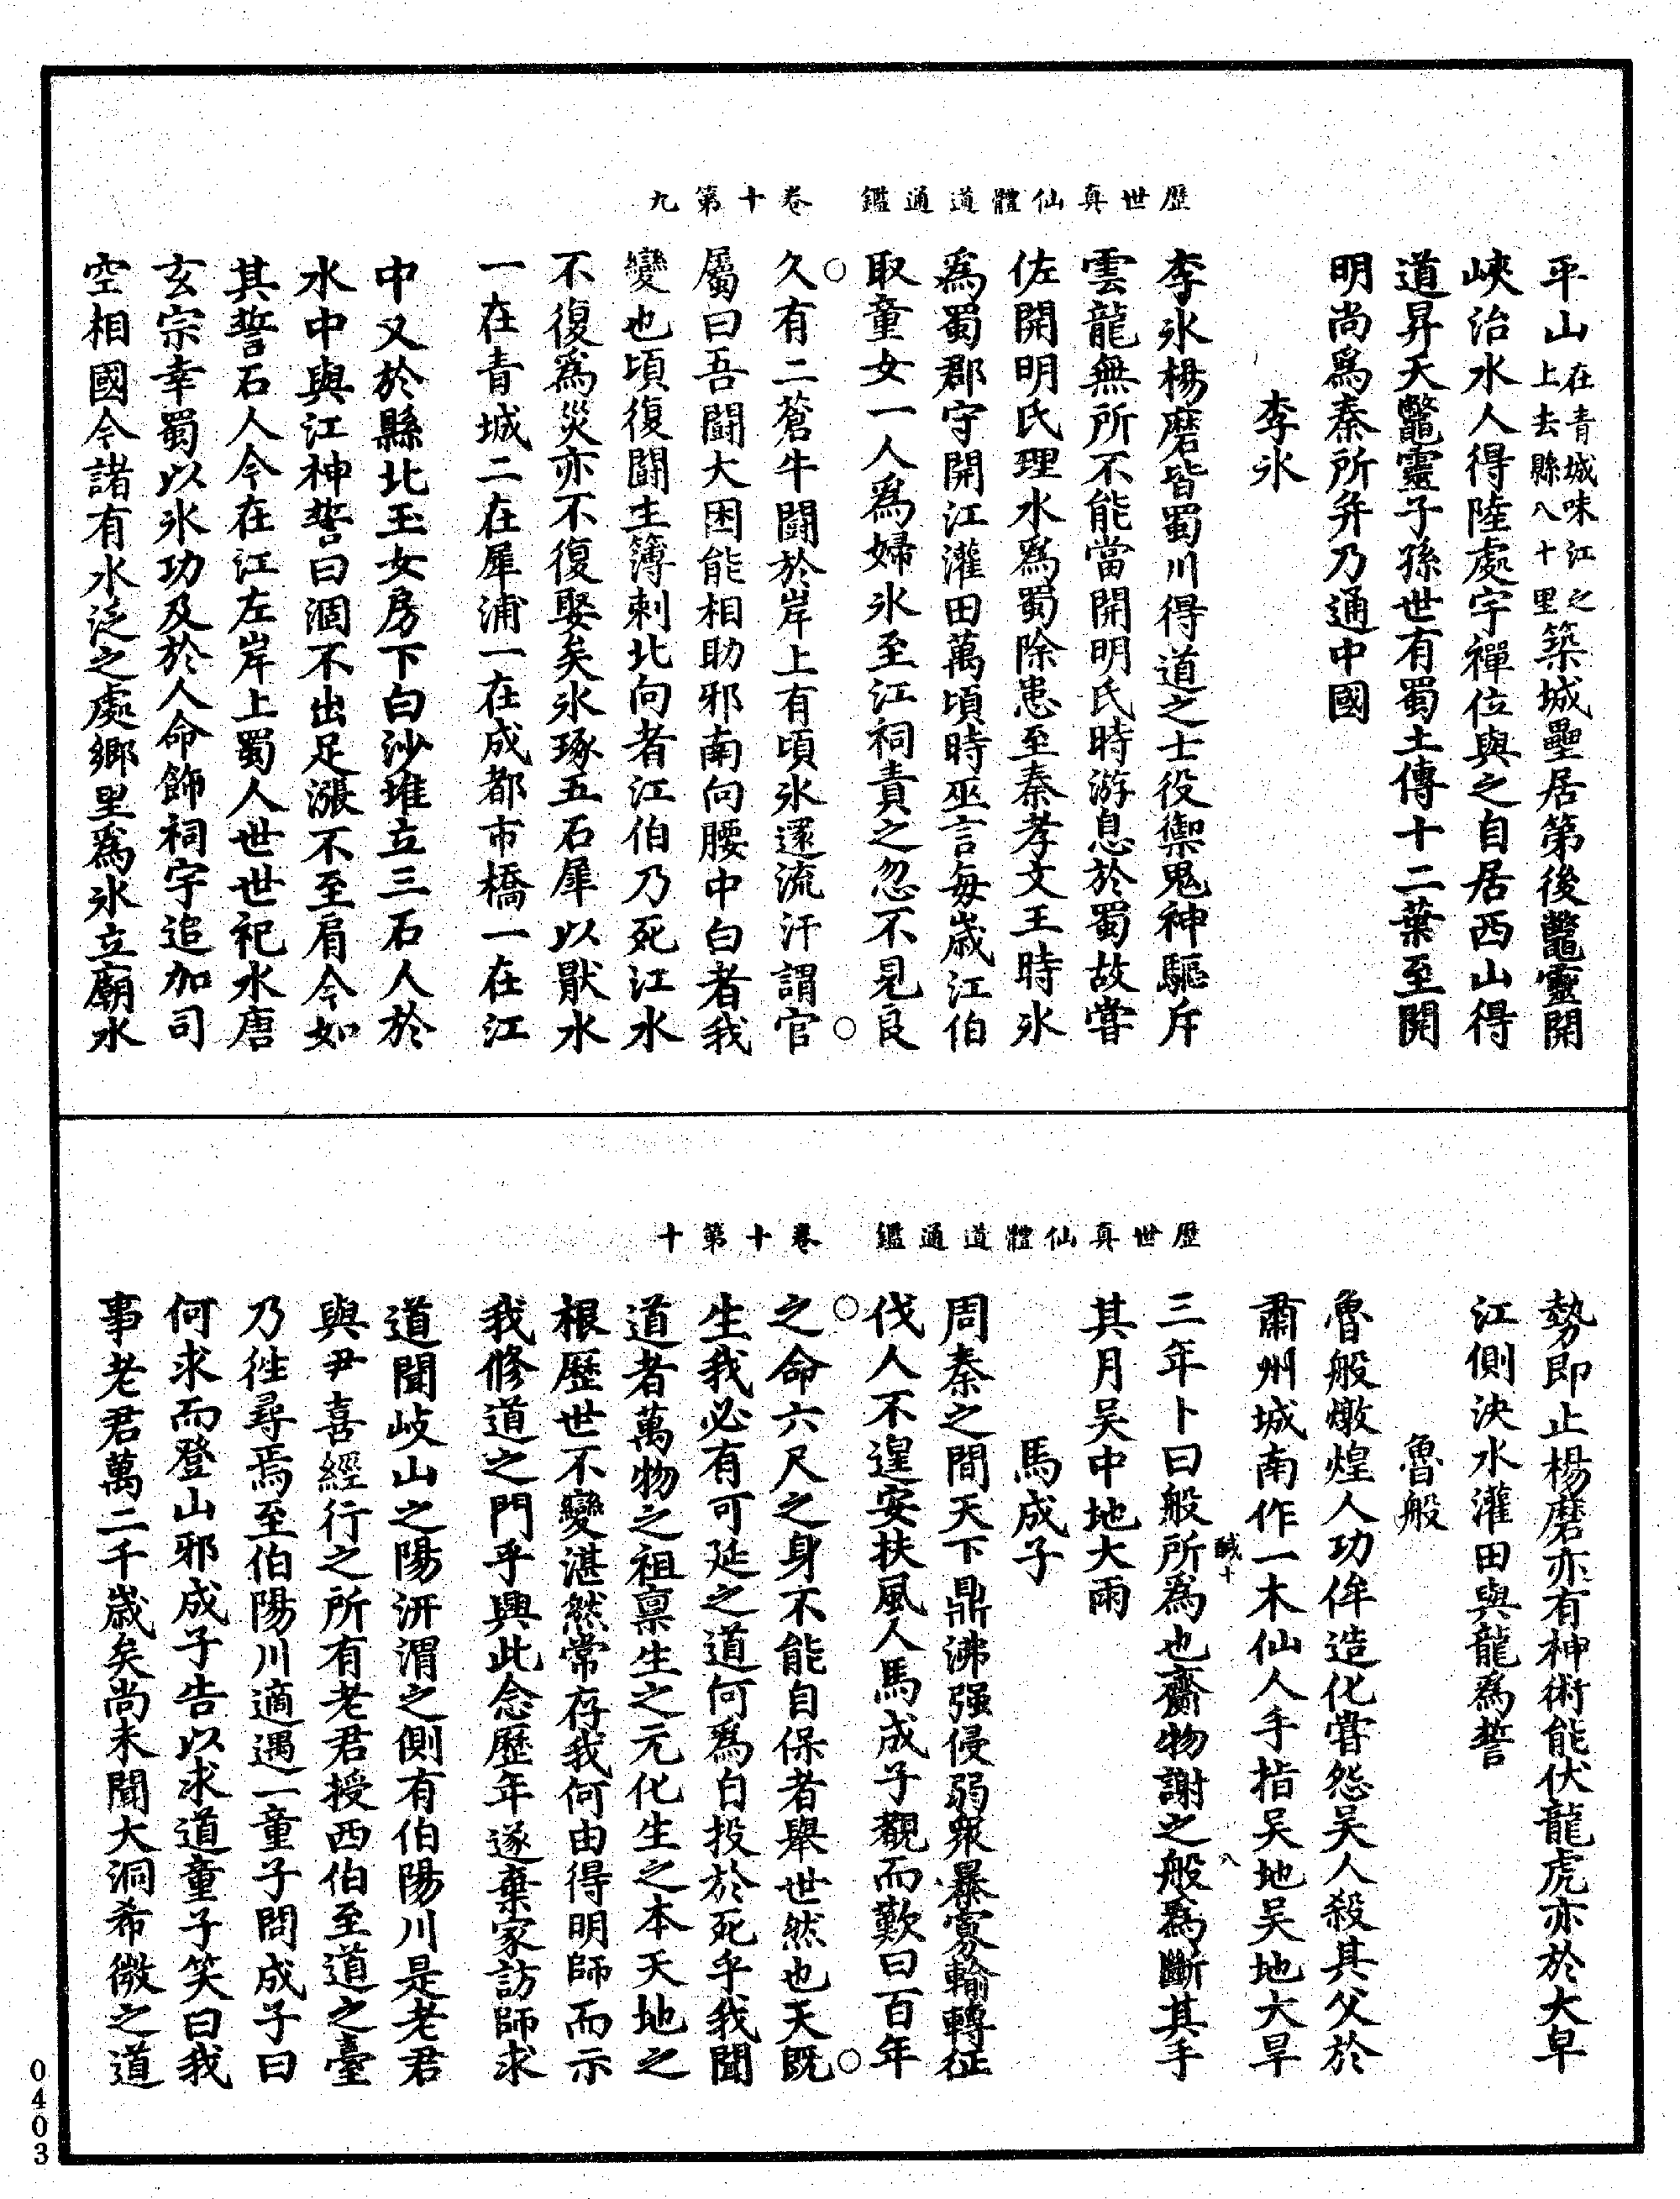 歷世真仙體道通鑑 卷十第九
平山在青城味江之上去縣八十里築城壘居第後鼈靈開
峽治水人得陸處宇禪位與之自居西山得
道昇天鼈靈子孫世有蜀土傳十二葉至開
明尚爲秦所并乃通中國
李冰
李冰楊磨皆蜀川得道之士役禦鬼神驅斥
雲龍無所不能當開明氏時游息於蜀故嘗
佐開明氏理水爲蜀除患至秦孝文王時冰
爲蜀郡守開江灌田萬頃時巫言每歲江伯
取童女一人爲婦冰至江祠責之忽不見良
久有二蒼牛鬪於岸上有頃冰還流汗謂官
屬曰吾鬪大困能相助邪南向腰中白者我
變也頃復鬪主簿刺北向者江伯乃死江水
不復爲災亦不復娶矣冰琢五石犀以厭水
一在青城二在犀浦一在成都市橋一在江
中又於縣北玉女房下白沙堆立三石人於
水中與江神誓曰涸不出足漲不至肩今如
其誓石人今在江左岸上蜀人世世祀水唐
玄宗幸蜀以冰功及於人命飾祠宇追加司
空相國今諸有水泛之處鄉里爲冰立廟水
歷世真仙體道通鑑 卷十第十
勢即止楊磨亦有神術能伏龍虎亦於大旱
江側決水灌田與龍爲誓
魯般
魯般燉煌人功侔造化嘗怨吳人殺其父於
肅州城南作一木仙人手指吳地吳地大旱
鹹十
八
三年卜曰般所爲也齎物謝之般爲斷其手
其月吳中地大雨
馬成子
周秦之間天下鼎沸强侵弱衆暴寡輪轉征
伐人不遑安扶風人馬成子覩而歎曰百年
之命六尺之身不能自保者舉世然也天既
生我必有可延之道何爲白投於死乎我聞
道者萬物之祖稟生之元化生之本天地之
根歷世不變湛然常存我何由得明師而示
我修道之門乎興此念歷年遂棄家訪師求
道聞岐山之陽汧渭之側有伯陽川是老君
與尹喜經行之所有老君授西伯至道之臺
乃徃尋焉至伯陽川適遇一童子問成子曰
何求而登山邪成子告以求道童子笑曰我
事老君萬二千歲矣尚未聞大洞希微之道
0403